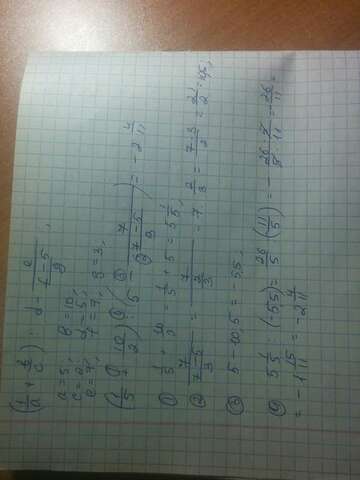 (1/a + b/c) : d - e/((f-5)/g),
a=5, b=10,
c=2, d=5,
e=7, f=7, g=3,
(1/5 + 10/2) : (5 - 7/((7-5)/3)) = -2 4/11,
① 1/5 + 10/2 = 1/5 + 5 = 5 1/5,
② 7/((7-5)/3) = 7/(2/3) = 7 : 2/3 = 7·3/2 = 21/2 = 10,5,
③ 5 - 10,5 = -5,5,
④ 5 1/5 : (-5,5) = 26/5 : (11/5) = - 26·5/5·11 = - 26/11 =
= -1 15/11 = -2 4/11